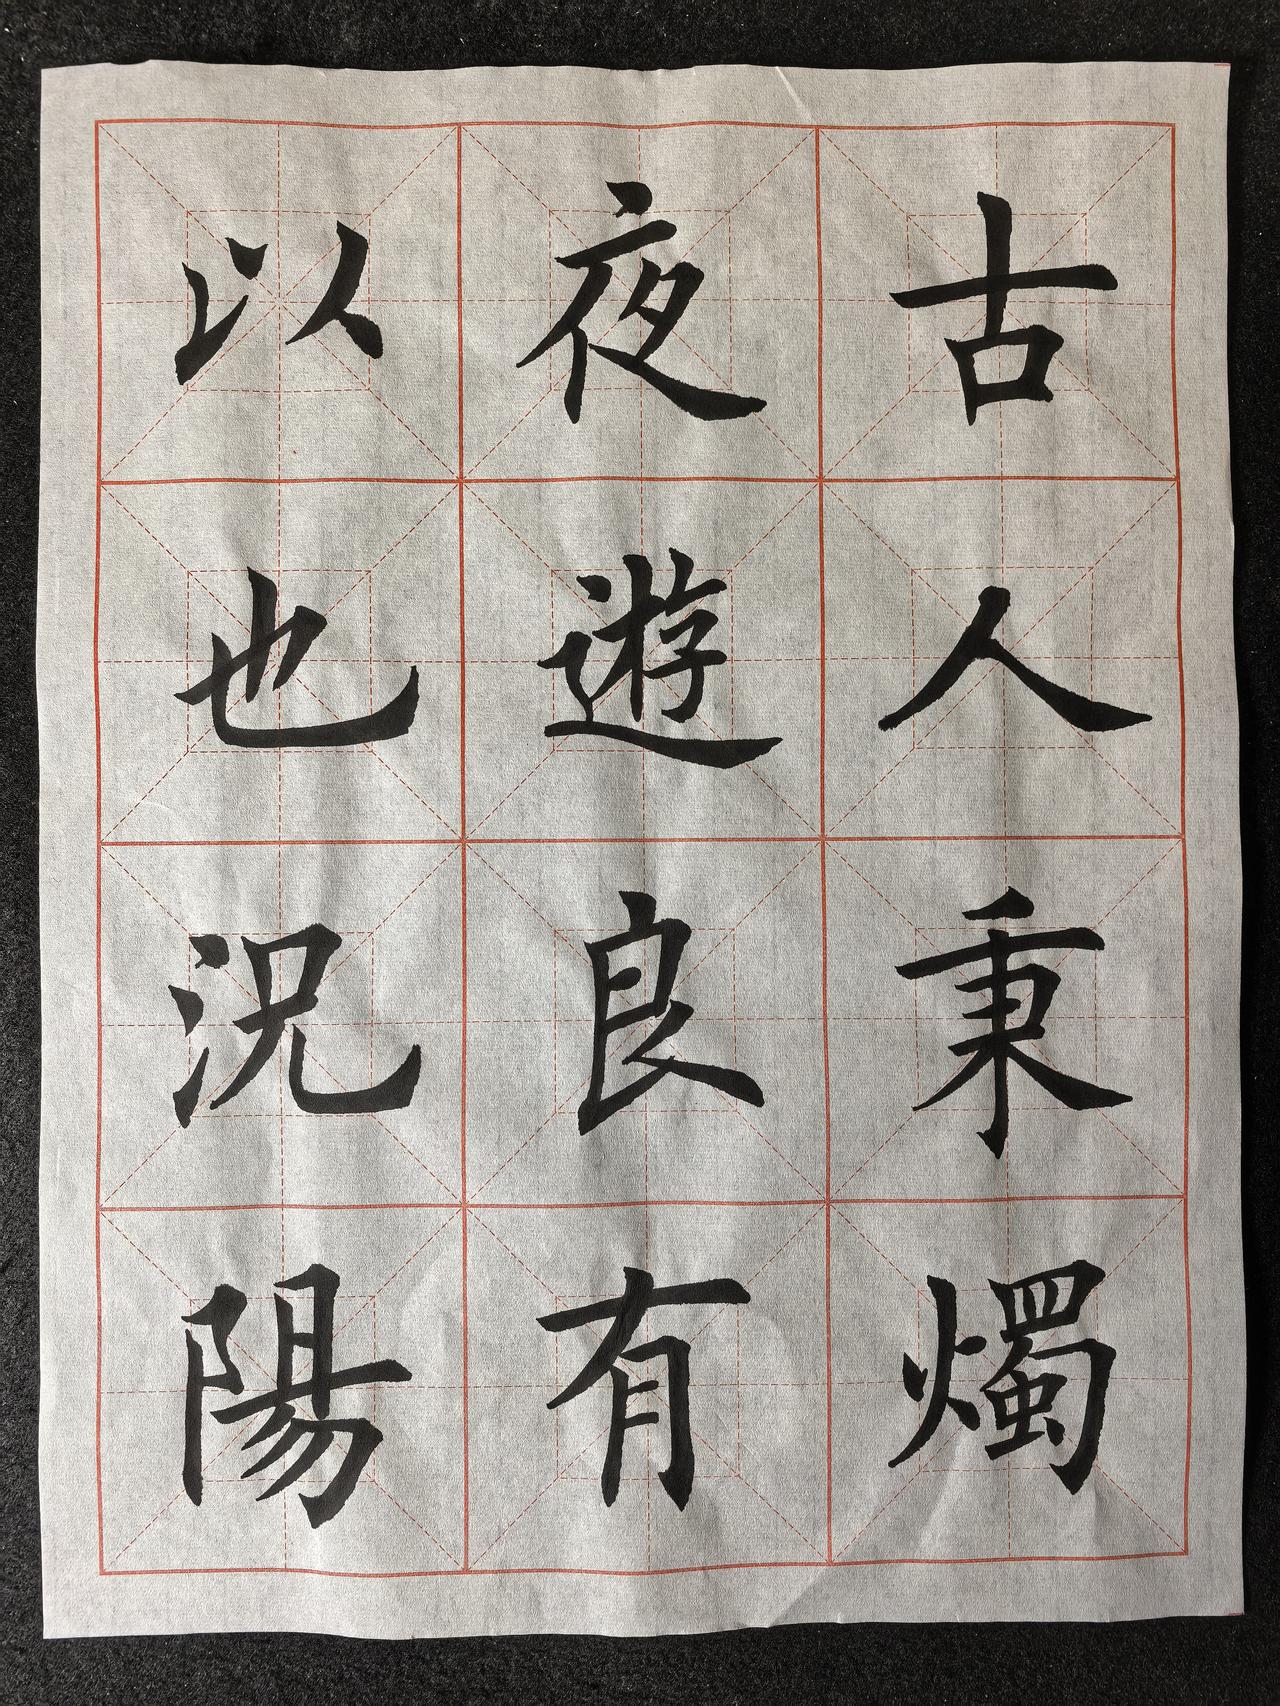 古人秉燭
夜遊良有
以也況陽